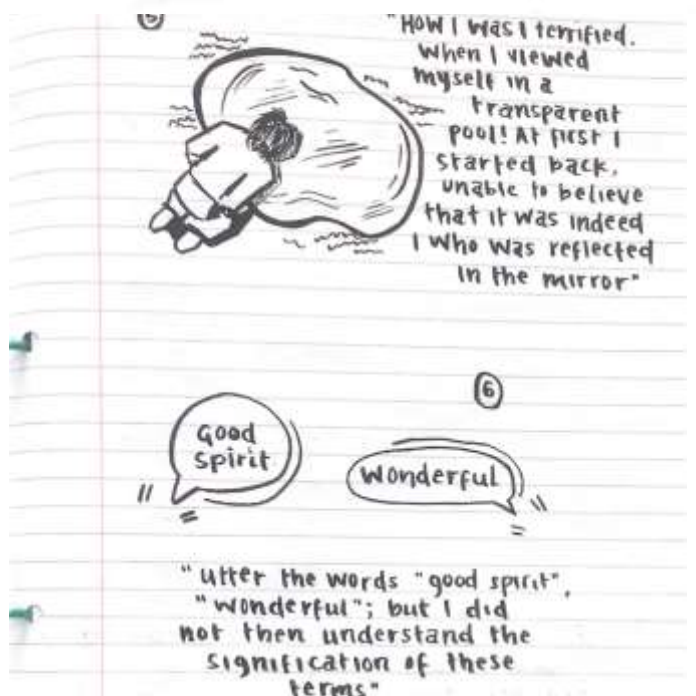 5
"How I was I terrified.
When I viewed
myself in a
transparent
pool! At first I
started back,
unable to believe
that it was indeed
I who was reflected
in the mirror"
6
Good
spirit
Wonderful
"utter the words "good spirit",
"wonderful"; but I did
not then understand the
signification of these
terms"